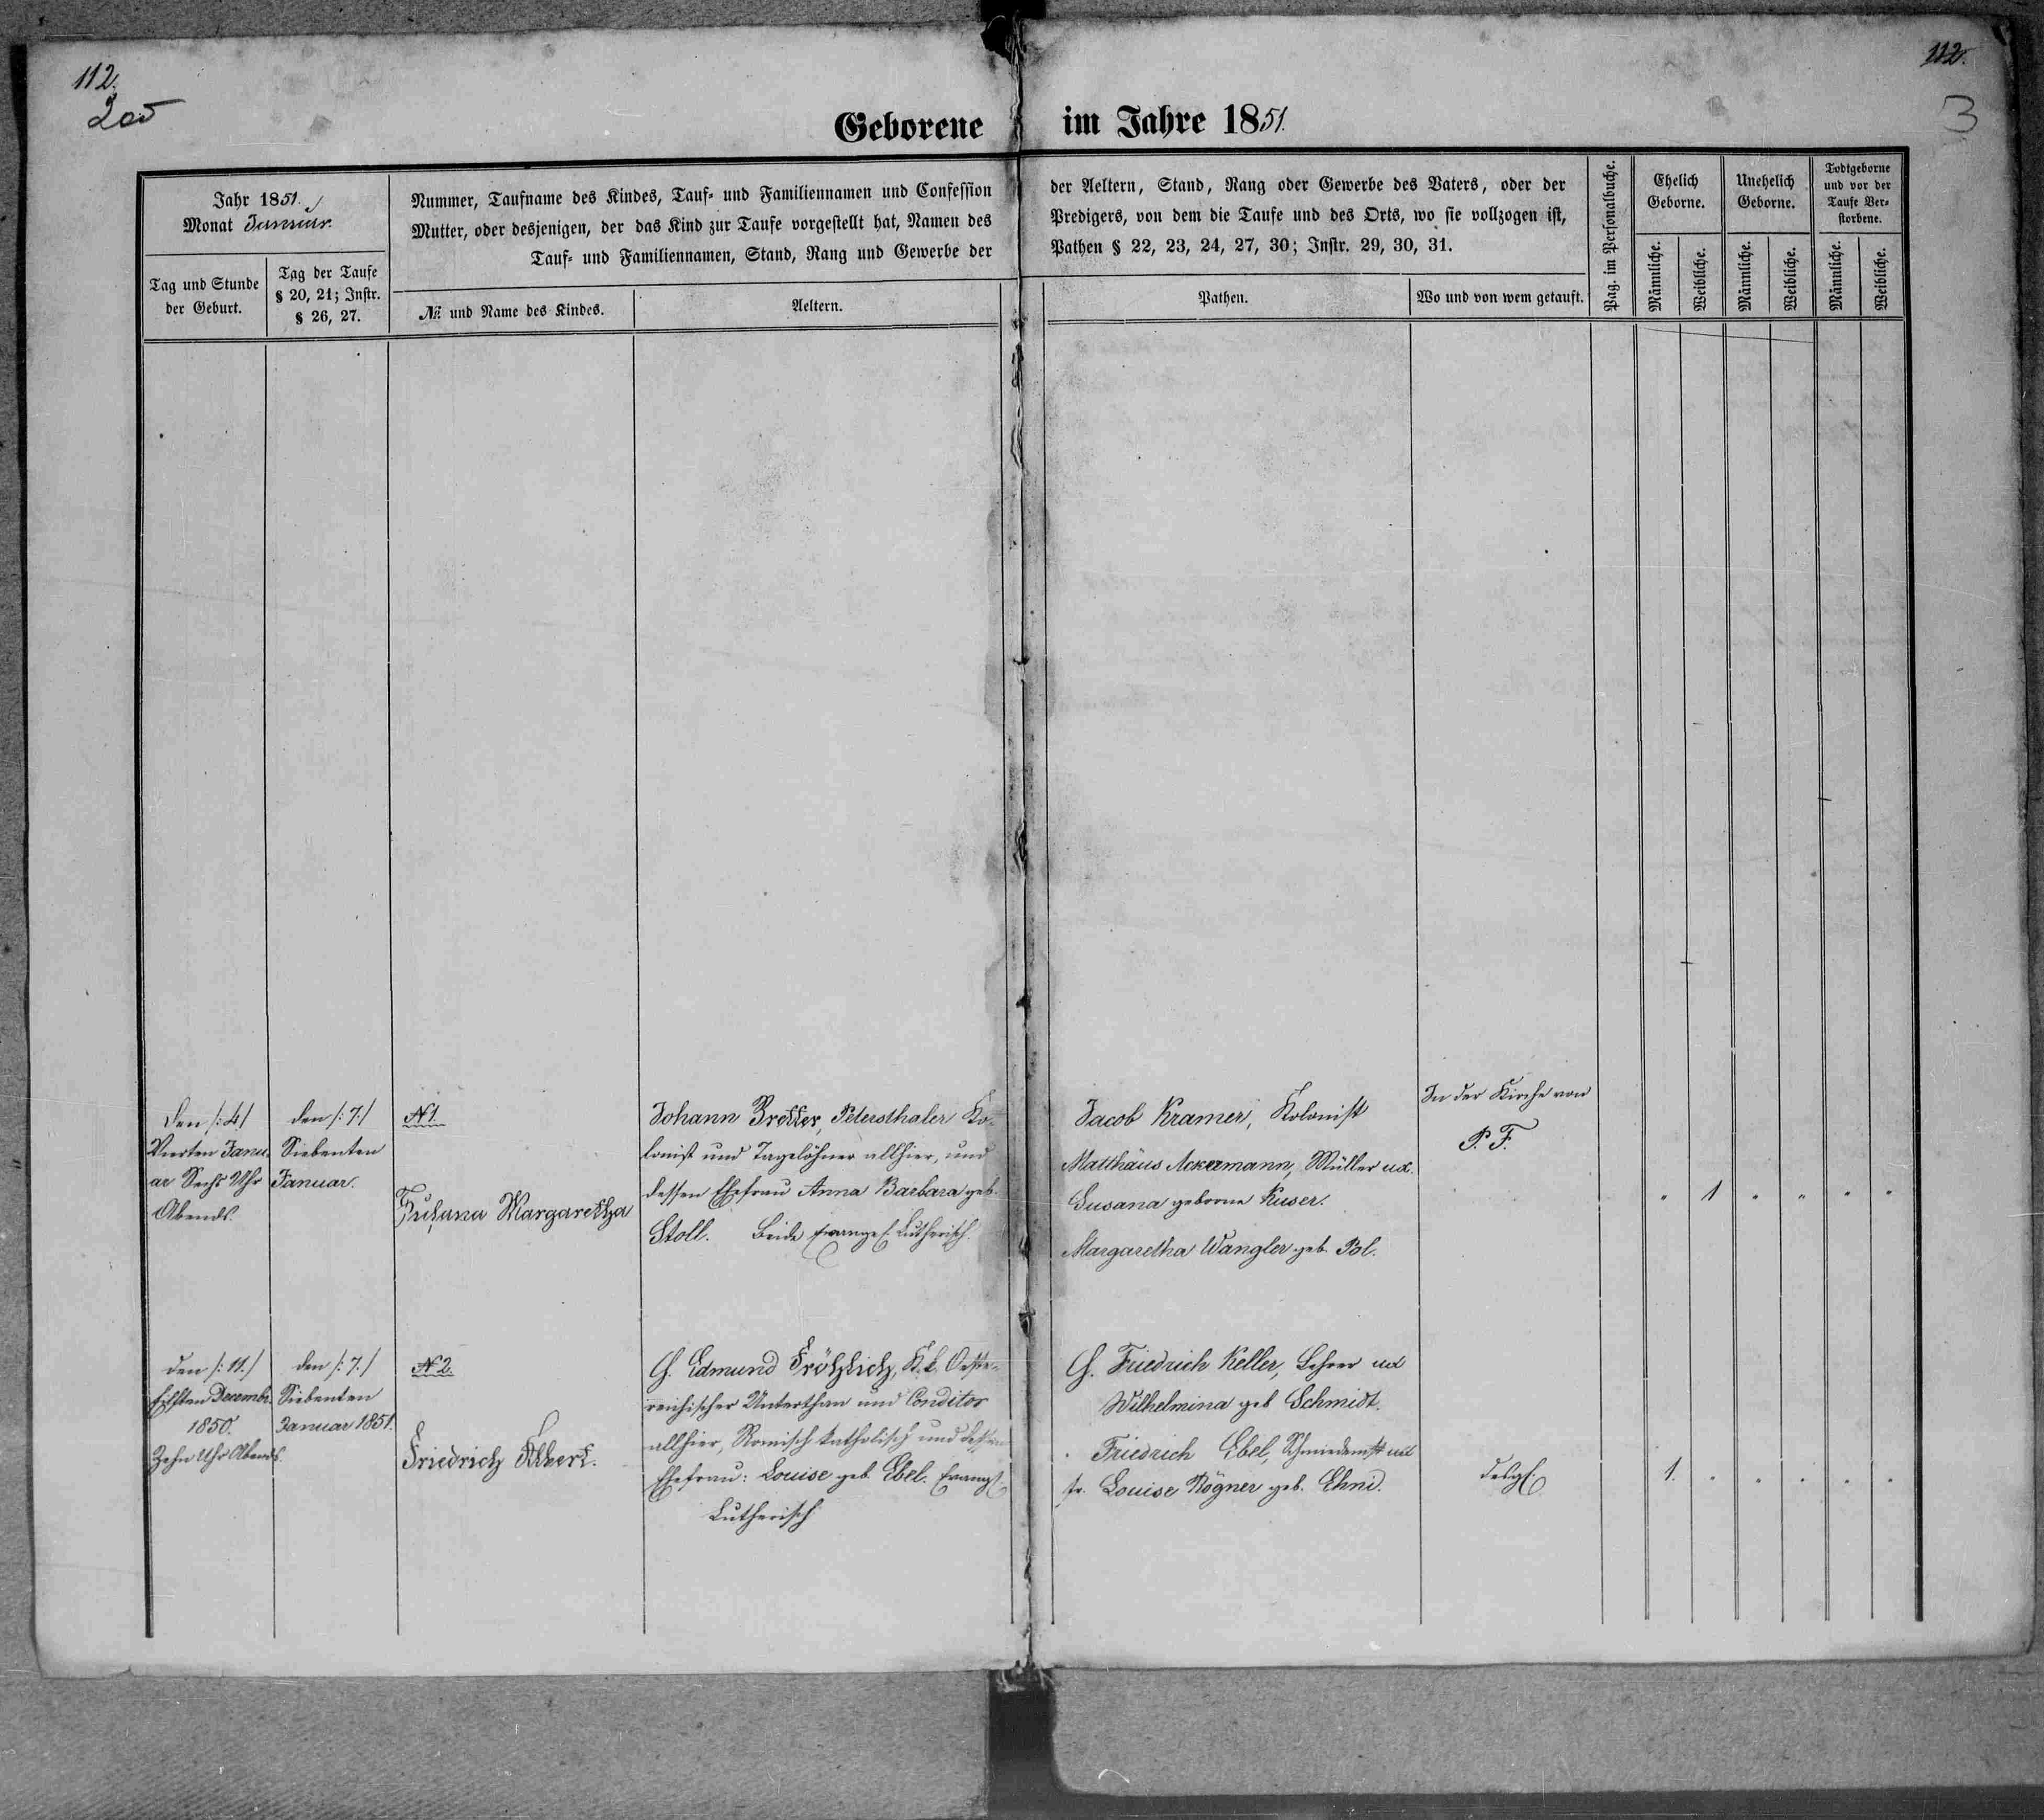 112.
112.
3
Geborene im Jahre 1851.
Jahr 1851.
Monat Januar.
Nummer, Taufname des Kindes, Tauf- und Familiennamen und Confession
Mutter, oder desjenigen, der das Kind zur Taufe vorgestellt hat, Namen des
Tauf- und Familiennamen, Stand, Rang und Gewerbe der
der Aeltern, Stand, Rang oder Gewerbe des Vaters, oder der
Predigers, von dem die Taufe und des Orts, wo sie vollzogen ist,
Pathen § 22, 23, 24, 27, 30; Instr. 29, 30, 31.
Tag und Stunde
der Geburt.
Tag der Taufe
§ 20, 21; Instr.
§ 26, 27.
№ und Name des Kindes.
Aeltern.
Pathen.
Wo und von wem getauft.
Pag. im Personalbuche.
Ehelich
Geborne.
Unehelich
Geborne.
Todtgeborne
und vor der
Taufe Ver-
storbene.
Männliche.
Weibliche.
Männliche.
Weibliche.
Männliche.
Weibliche.
den /:4/
Vierten Janu-
ar Sechs Uhr
Abends.
den /:7:/
Siebenten
Januar.
N 1.
Susana Margaretha
Johann Petersthaler Ko-
lonist und Tagelöhner allhier, und
dessen Ehefrau Anna Barbara geb.
Stoll. Beide Evangel. Lutherisch.
Jacob Kramer, Kolonist
Matthäus Ackermann, Müller ud.
Susana geborne Kuser.
Margaretha Wangler geb. Bol.
In der Kirche von
P. F.
" 1 " " " "
den /:11./
Eilften Decembr.
1850.
Zehn Uhr Abends.
den /:7./
Siebenten
Januar 1851.
N 2.
Friedrich Albert.
H. Edmund Fröhlich, K. K. Oeste-
reichischer Unterthan und Conditor
allhier, Römisch katholisch und dessen
Ehefrau: Louise geb. Ebel. Evangl.
Lutherisch
H. Friedrich Keller, Lehrer ud
Wilhelmina geb Schmidt.
" Friedrich Ebel, Schmiedemstr ud
fr. Louise Rögner geb. Ehni.
desgl.
1. " " " " "